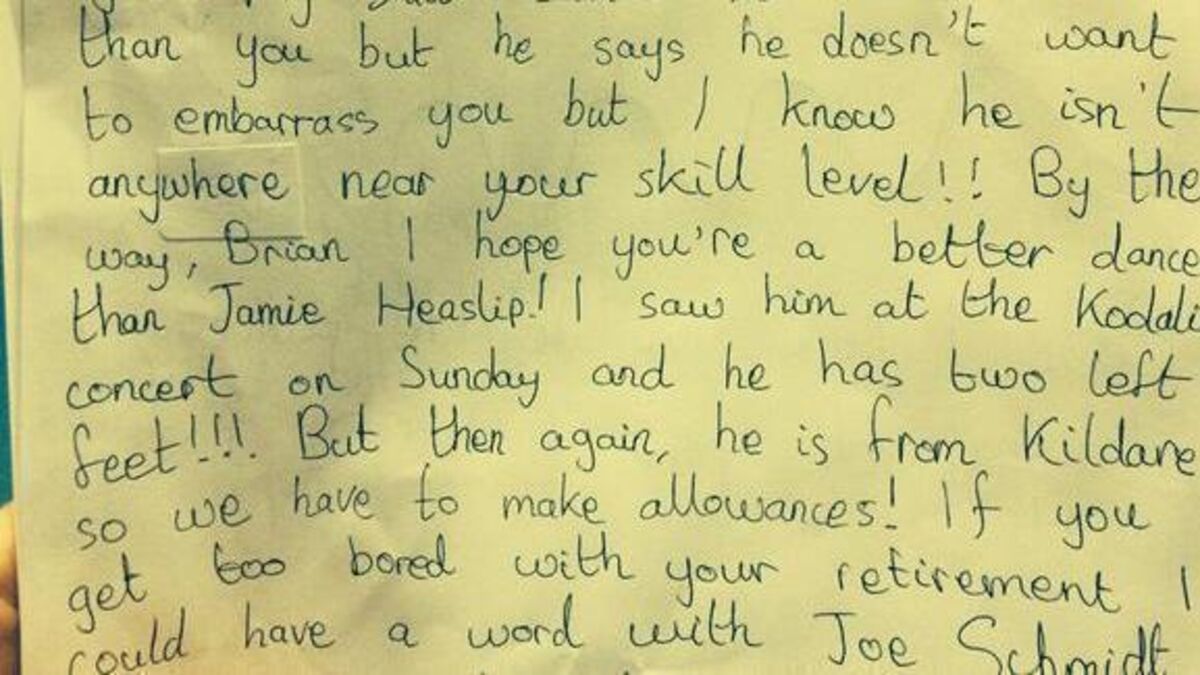 than you but he says he doesn't want
to embarrass you but I know he isn't
anywhere near your skill level!! By the
way, Brian I hope you're a better dance
than Jamie Heaslip! I saw him at the Kodali
concert on Sunday and he has two left
feet!!! But then again, he is from Kildare
so we have to make allowances! If you
get too bored with your retirement I
could have a word with Joe Schmidt